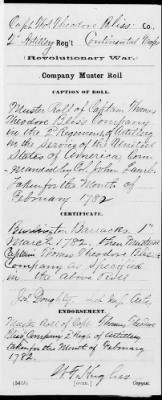 Capt. Thos Theodore Bliss Co.,
2d Artillery Reg't Continental Troops
(Revolutionary War.)
Company Muster Roll
CAPTION OF ROLL.
Muster Roll of Captain Thomas
Theodore Bliss Company
in the 2d Regiment of Artillery
in the Service of the United
States of America Com
manded by Col. John Lamb
Taken for the Month of
February 1782
CERTIFICATE.
Burlington Barracks 1st
March 1782. Then Mustered
Captain Thomas Theodore Bliss
Company as Specified
in the above Roll
ENDORSEMENT.
Muster Roll of Capt. Thomas Theodore
Bliss Company 2 Regt of Artillery
taken for the Month of February
1782.